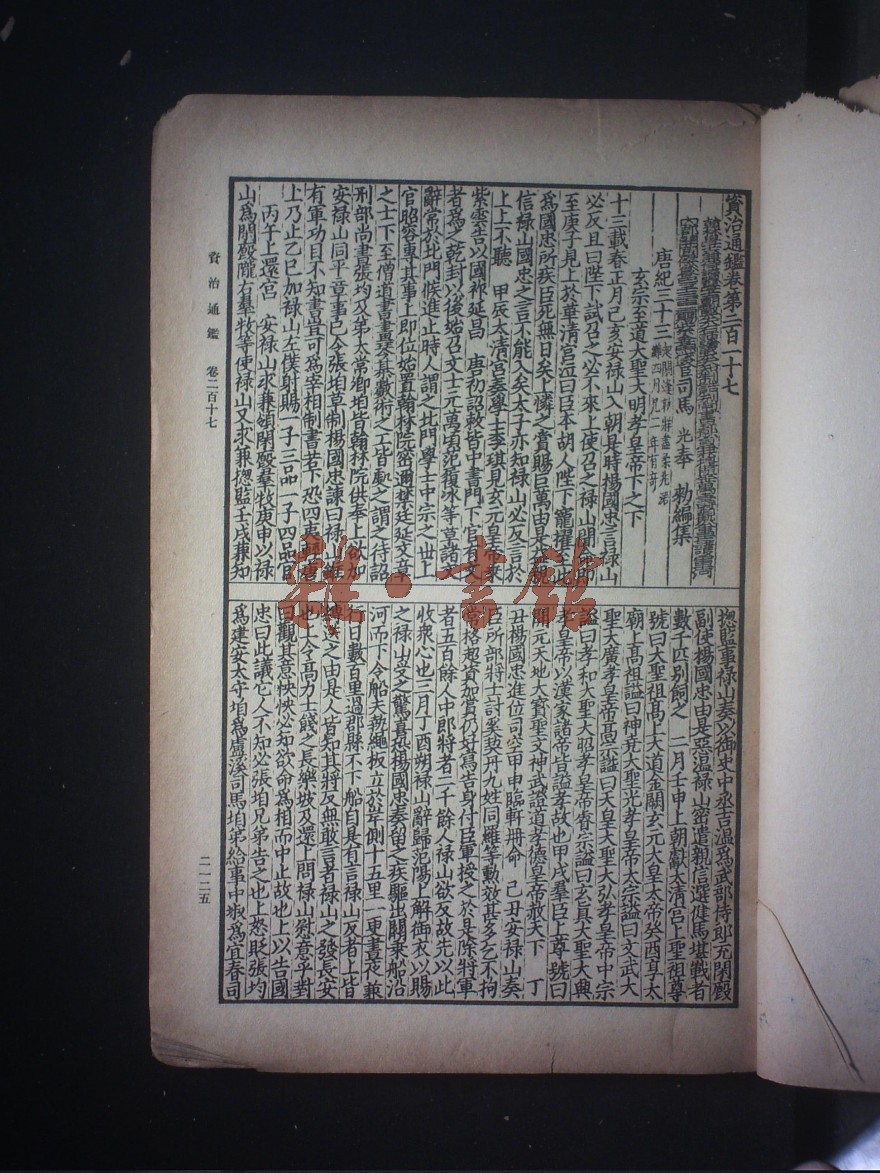 資治通鑑卷第二百一十七
司馬 光奉 勑編集
唐紀三十三
玄宗至道大聖大明孝皇帝下之下
十三載春正月己亥安禄山入朝是時楊國忠言禄山
必反且曰陛下試召之必不來上使召之禄山聞命即
至庚子見上於華清宮泣曰臣本胡人陛下寵擢至此
爲國忠所疾臣死無日矣上憐之賞賜巨萬由是益親
信禄山國忠之言不能入矣太子亦知禄山必反言於
上上不聽 甲辰太清宮奏學士李琪見玄元皇帝乘
紫雲告以國祚延昌 唐初詔敕皆中書門下官有文
者爲之乾封以後始召文士元萬頃范履冰等草諸文
辭常於北門候進止時人謂之北門學士中宗之世上
官昭容專其事上即位始置翰林院密邇禁廷延文章
之士下至僧道書畫琴棊數術之工皆處之謂之待詔
刑部尚書張均及弟太常卿垍皆翰林院供奉上欲加
安禄山同平章事已令張垍草制楊國忠諫曰禄山雖
有軍功目不知書豈可爲宰相制書若下恐四夷輕唐
上乃止乙巳加禄山左僕射賜一子三品一子四品官
丙午上還宮 安禄山求兼領閑廐羣牧庚申以禄
山爲閑廐隴右羣牧等使禄山又求兼揔監壬戌兼知
揔監事禄山奏以御史中丞吉温爲武部侍郎充閑廐
副使楊國忠由是惡温禄山密遣親信選健馬堪戰者
數千匹别飼之 二月壬申上朝獻太清宮上聖祖尊
號曰大聖祖髙上大道金闕玄元大皇太帝癸酉享太
廟上高祖謚曰神堯大聖光孝皇帝太宗謚曰文武大
聖大廣孝皇帝高宗謚曰天皇大聖大弘孝皇帝中宗
謚曰孝和大聖大昭孝皇帝睿宗謚曰玄真大聖大興
孝皇帝以漢家諸帝皆謚孝故也甲戌羣臣上尊號曰
開元天地大寶聖文神武證道孝德皇帝赦天下 丁
丑楊國忠進位司空甲申臨軒册命 己丑安禄山奏
臣所部將士討奚契丹九姓同羅等勳效甚多乞不拘
常格超資加賞仍好寫告身付臣軍授之於是除將軍
者五百餘人中郎將者二千餘人禄山欲反故先以此
收衆心也三月丁酉朔禄山辭歸范陽上解御衣以賜
之禄山受之驚喜恐楊國忠奏留之疾驅出關乘船沿
河而下令船夫執繩板立於岸側十五里一更晝夜兼
行日數百里過郡縣不下船自是有言禄山反者上皆
縛送之由是人皆知其將反無敢言者禄山之發長安
也上令高力士餞之長樂坡及還上問禄山慰意乎對
曰觀其意怏怏必知欲命爲相而中止故也上以告國
忠曰此議它人不知必張垍兄弟告之也上怒貶張均
爲建安太守垍爲盧溪司馬垍弟給事中埱爲宜春司
資治通鑑 卷二百十七
二一二五
雜·書館